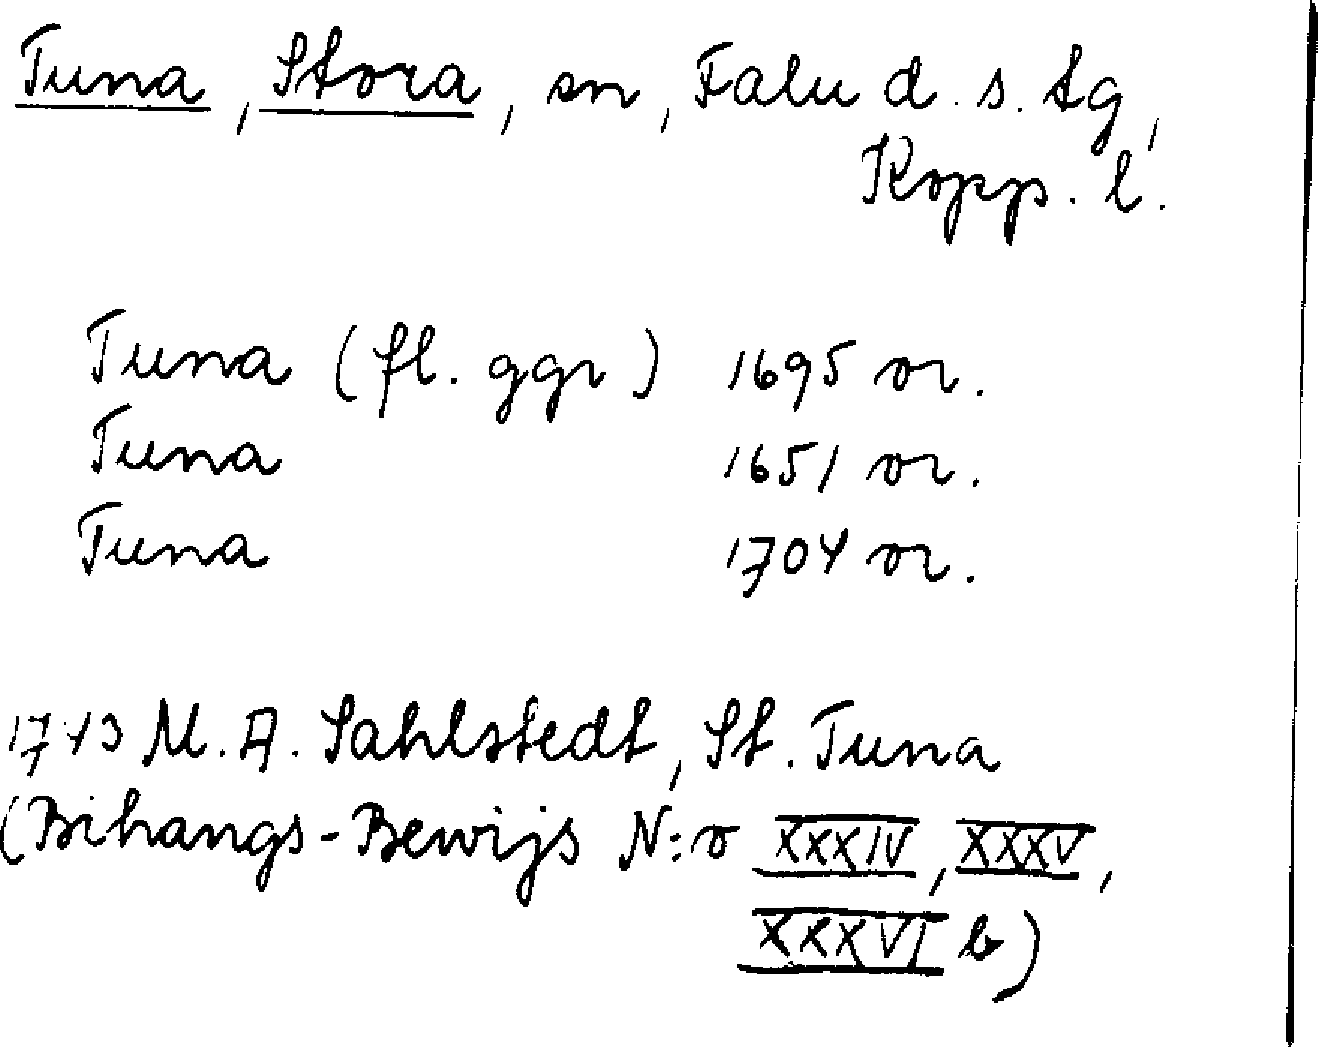 Tuna, Stora, sn, Falu d. s. tg,
Kopp. l.
Tuna (fl. ggr) 1695 or.
Tuna 1651 or.
Tuna 1704 or.
1743 M. A. Sahlstedt, St. Tuna
(Bihangs-Bewijs N:o XXXIV, XXXV,
XXXVI b)